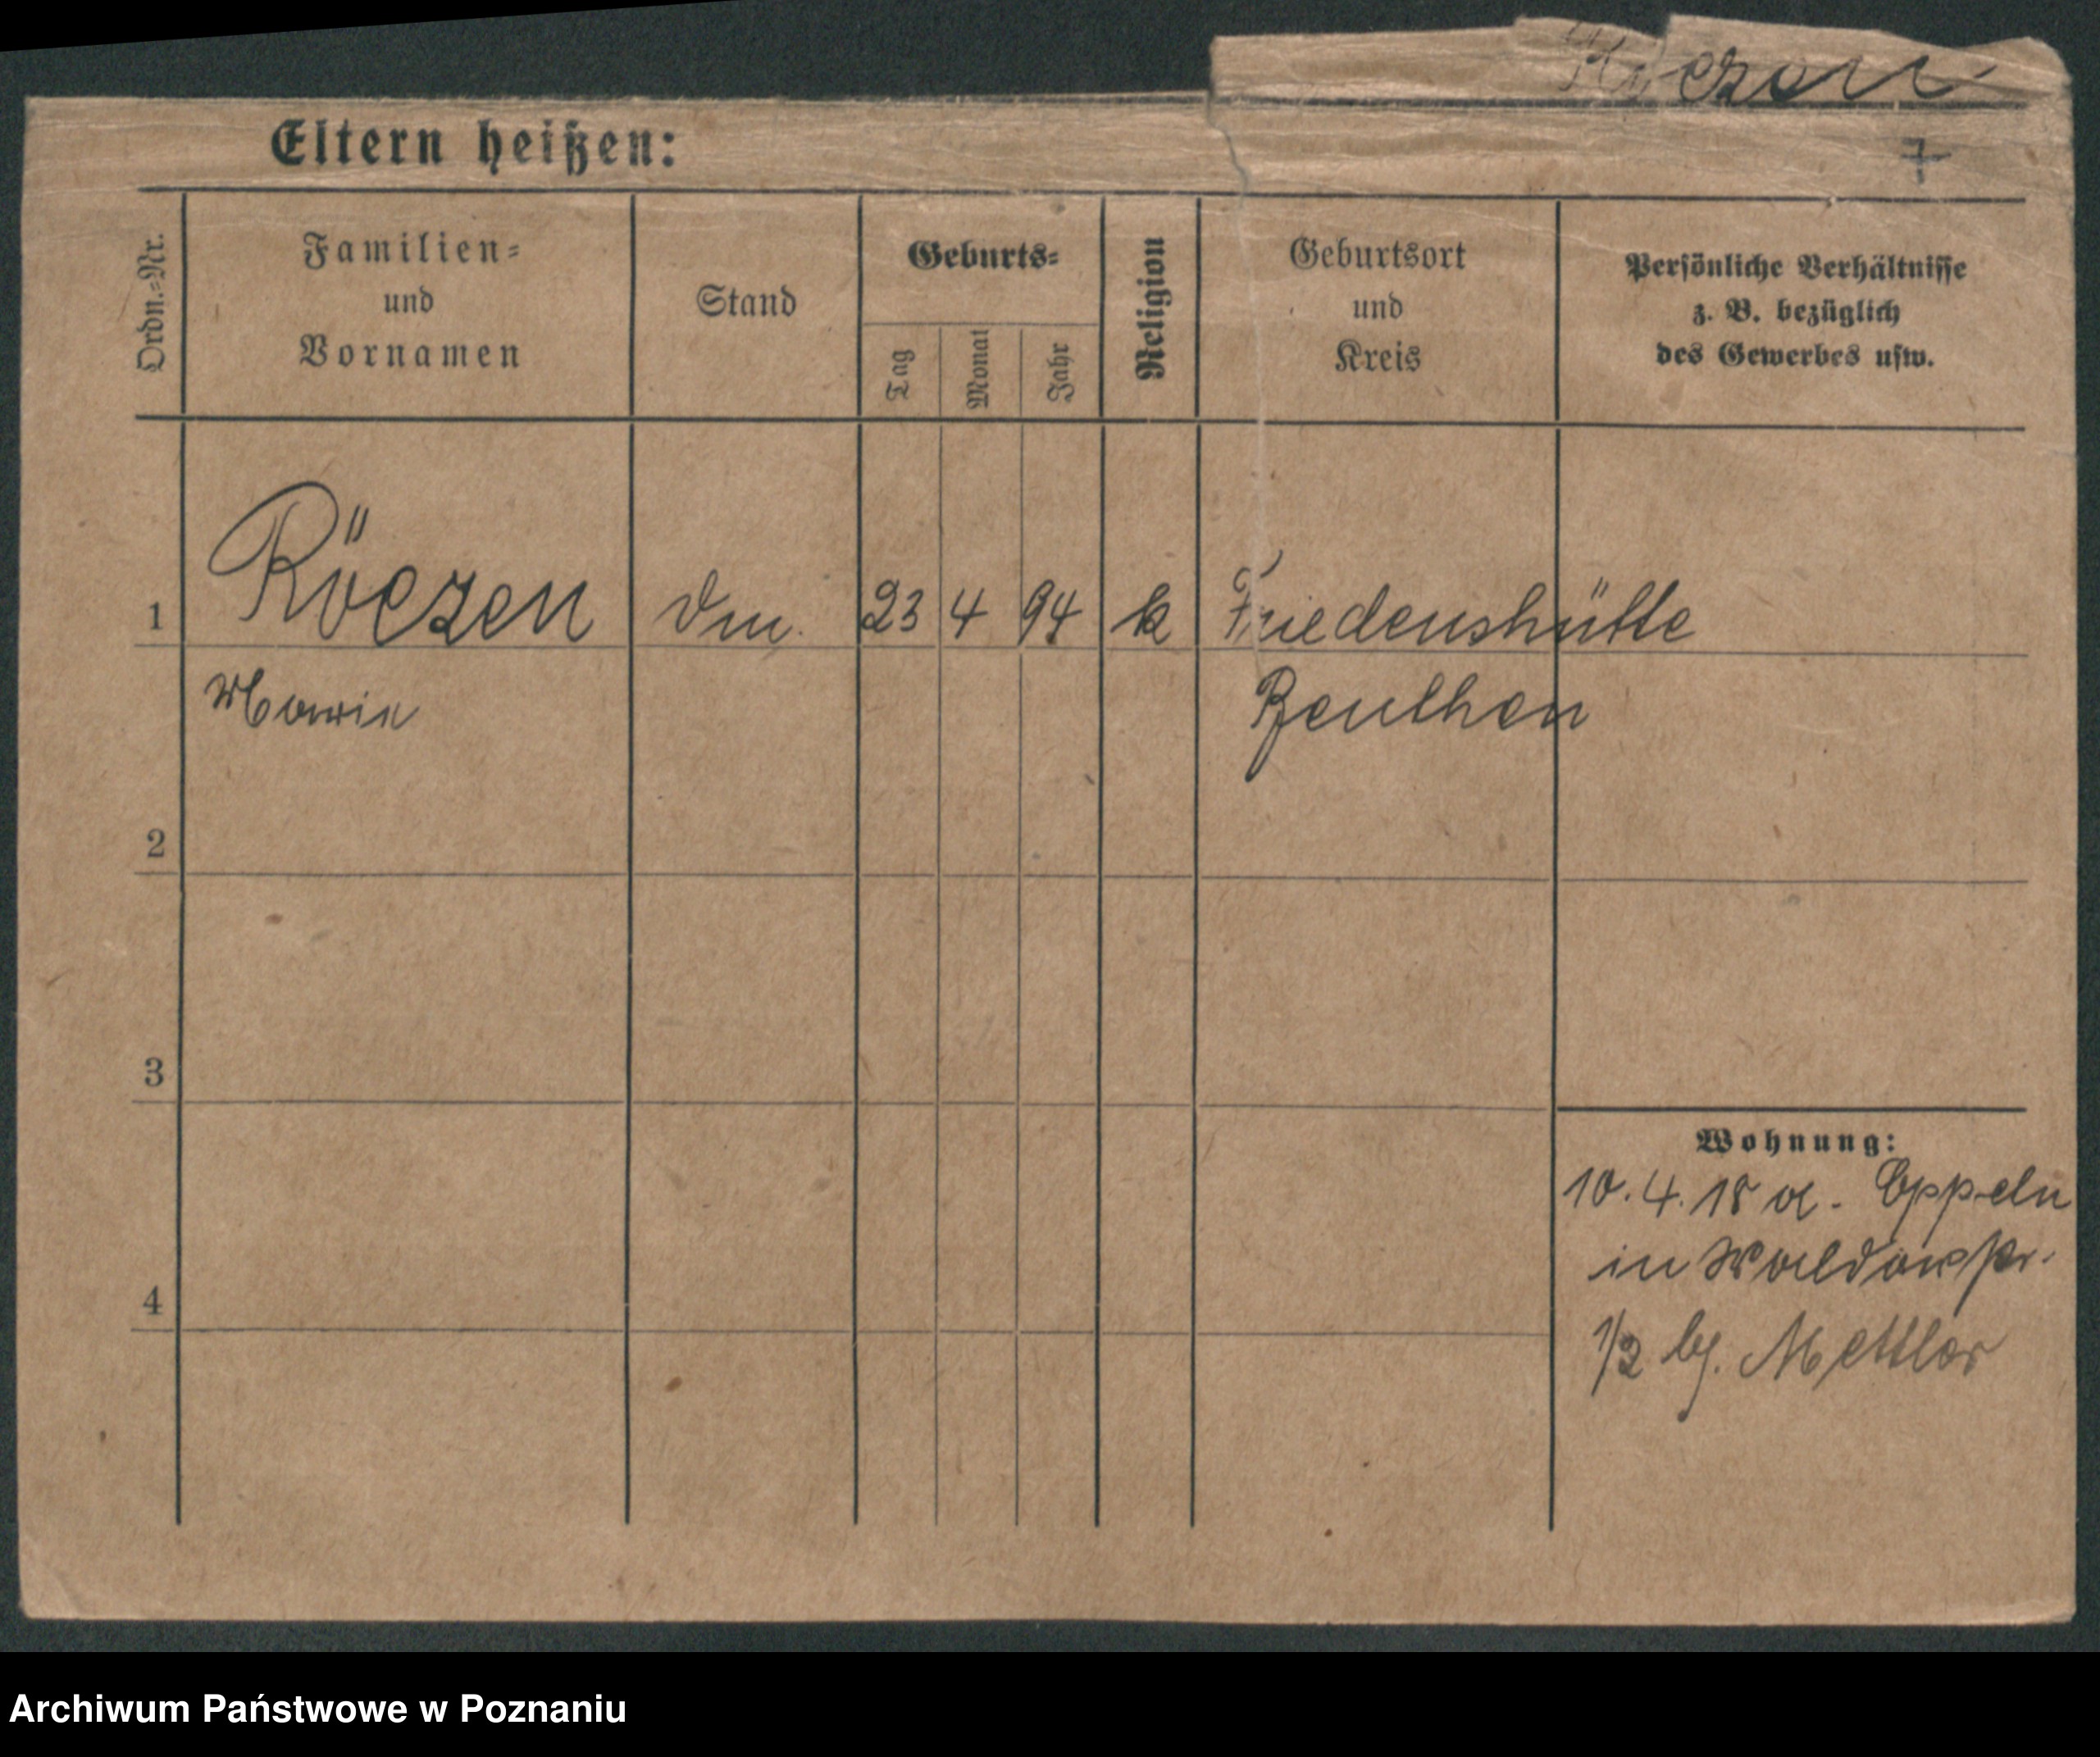 Eltern heißen:
Ordn.-Nr.
Familien-
und
Vornamen
Stand
Geburts-
Tag
Monat
Jahr
Religion
Geburtsort
und
Kreis
Persönliche Verhältnisse
z. B. bezüglich
des Gewerbes usw.
1
Röezen
23 4 94 k Friedenshütte
Marie
Beuthen
2
3
4
Wohnung:
10. 4. 18 a. Oppeln
in Waldowstr.
1/2 b. Mettler
Archiwum Państwowe w Poznaniu